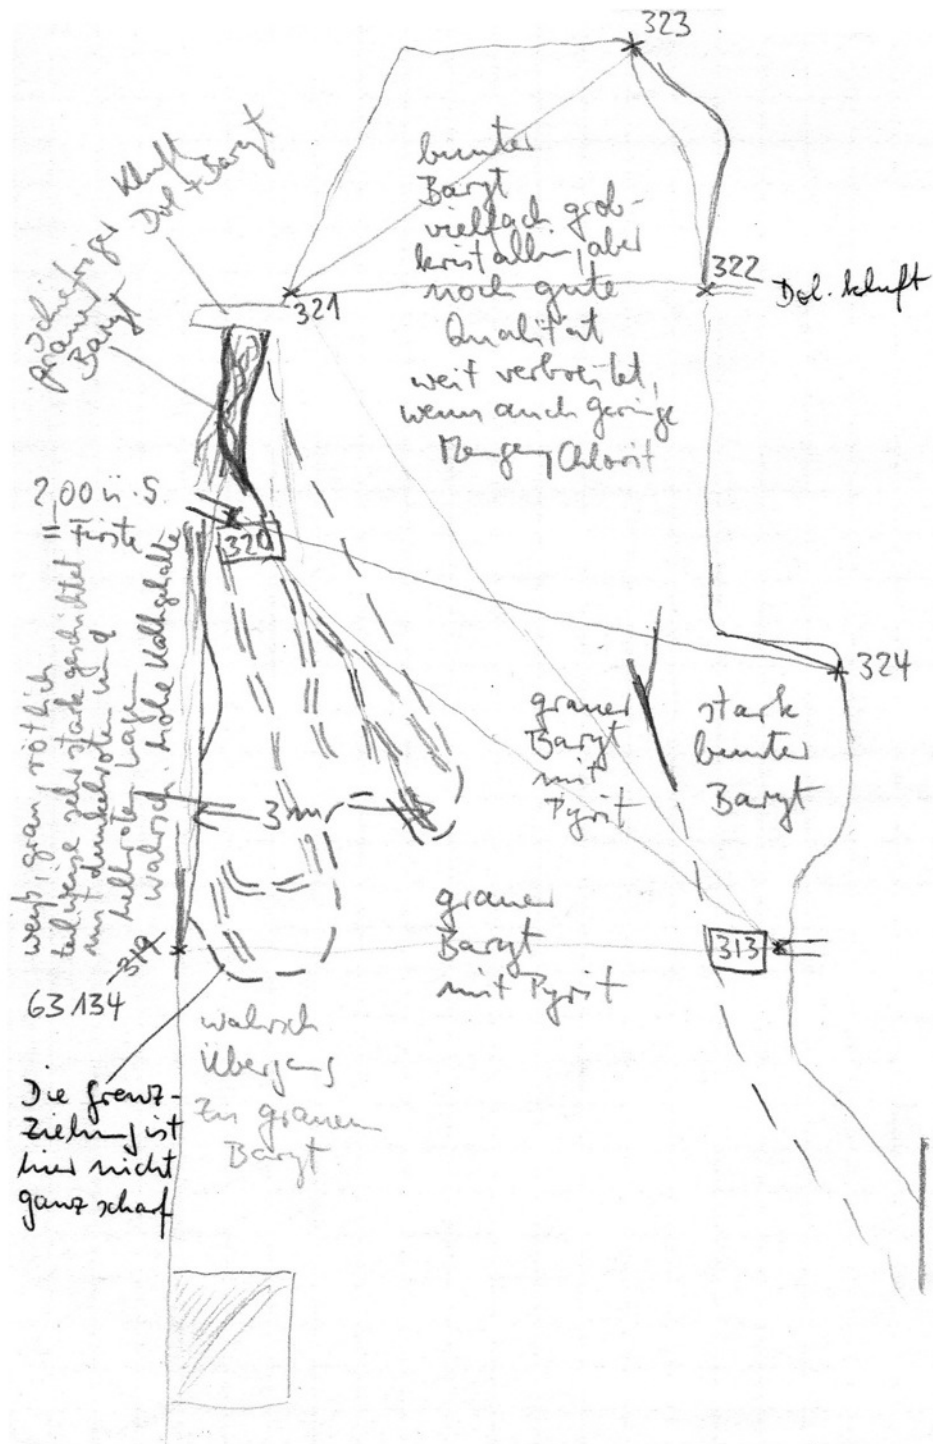 323
Kluft
Dol + Baryt
bunter
Baryt
vielfach grob-
kristallin, aber
noch gute
Qualität
weit verbreitet,
wenn auch geringe
Mengen Chlorit
322
Dol. kluft
321
grauer
Baryt
2,00 ü. S.
= Firste
320
324
weiß, grau, rötlich
teilweise sehr stark geschichtet
mit dunkelroten und
hellroten
wahrsch. hohe Kalkgehalte
grauer
Baryt
mit
Pyrit
stark
bunter
Baryt
3 m
grauer
Baryt
mit Pyrit
313
319
63134
wahrsch
Übergang
zu grauem
Baryt
Die Grenz-
Ziehung ist
hier nicht
ganz scharf